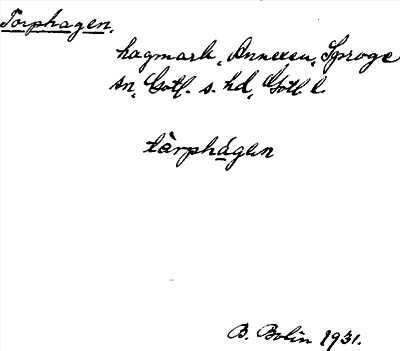 Torphagen.
hagmark, Annexen, Sproge
sn, Gotl. s. hd, Gotl. l.
tàrphágen
B. Bolin 1931.